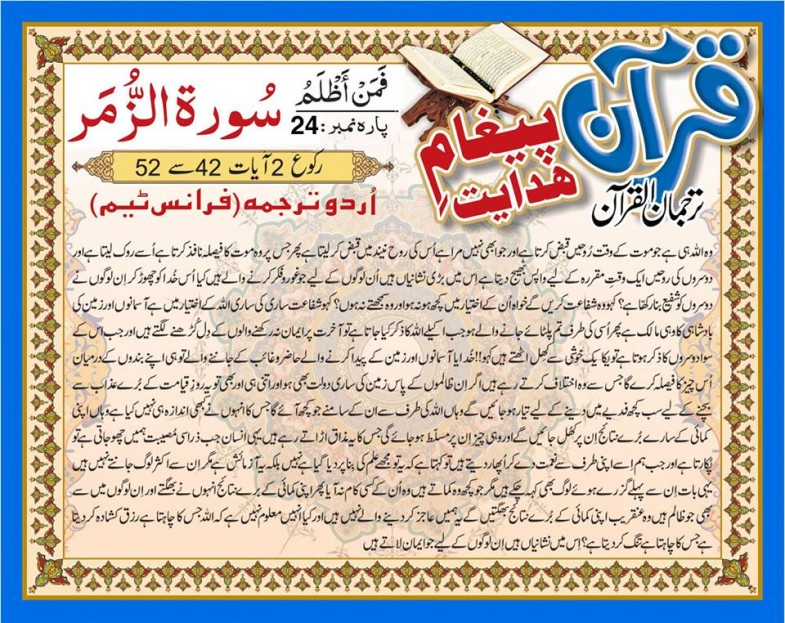 قرآن
پیغامِ
ھدایت
ترجمان القرآن
فَمَنْ أَظْلَمُ
پارہ نمبر: 24
سُورة الزُّمَر
رکوع 2 آیات 42 سے 52
اُردو ترجمہ (فرانس ٹیم)
وہ اللہ ہی ہے جو موت کے وقت رُوحیں قبض کرتا ہے اور جو ابھی نہیں مرا ہے اُس کی روح نیند میں قبض کر لیتا ہے پھر جس پر وہ موت کا فیصلہ نافذ کرتا ہے اُسے روک لیتا ہے اور
دوسروں کی روحیں ایک وقتِ مقررہ کے لیے واپس بھیج دیتا ہے اِس میں بڑی نشانیاں ہیں اُن لوگوں کے لیے جو غور و فکر کرنے والے ہیں کیا اُس خُدا کو چھوڑ کر اِن لوگوں نے
دوسروں کو شفیع بنا رکھا ہے؟ کہو وہ شفاعت کریں گے خواہ اُن کے اختیار میں کچھ ہو نہ ہو اور وہ سمجھتے نہ ہوں؟ کہو شفاعت ساری کی ساری اللہ کے اختیار میں ہے آسمانوں اور زمین کی
بادشاہی کا وہی مالک ہے پھر اُسی کی طرف تم پلٹائے جانے والے ہو جب اکیلے اللہ کا ذکر کیا جاتا ہے تو آخرت پر ایمان نہ رکھنے والوں کے دِل کڑھنے لگتے ہیں اور جب اس کے
سوا دوسروں کا ذکر ہوتا ہے تو یکا یک خوشی سے کھل اٹھتے ہیں کہو!! خُدایا آسمانوں اور زمین کے پیدا کرنے والے حاضر و غائب کے جاننے والے تو ہی اپنے بندوں کے درمیان
اُس چیز کا فیصلہ کرے گا جس سے وہ اختلاف کرتے رہے ہیں اگر اِن ظالموں کے پاس زمین کی ساری دولت بھی ہو اور اتنی ہی اور بھی تو یہ روزِ قیامت کے بُرے عذاب سے
بچنے کے لیے سب کچھ فدیے میں دینے کے لیے تیار ہو جائیں گے وہاں اللہ کی طرف سے ان کے سامنے جو کچھ آئے گا جس کا انہوں نے کبھی اندازہ ہی نہیں کیا ہے وہاں اپنی
کمائی کے سارے بُرے نتائج اِن پر کُھل جائیں گے اور وہی چیز ان پر مسلط ہو جائے گی جس کا یہ مذاق اڑاتے رہے ہیں یہی انسان جب ذرا سی مصیبت ہمیں چھو جاتی ہے تو
پکارتا ہے اور جب ہم اسے اپنی طرف سے نعمت دے کر اُبھار دیتے ہیں تو کہتا ہے کہ یہ تو مجھے علم کی بنا پر دیا گیا ہے نہیں بلکہ یہ آزمائش ہے مگر اِن سے اکثر لوگ جانتے نہیں ہیں
یہی بات اِن سے پہلے گزرے ہوئے لوگ بھی کہہ چکے ہیں مگر جو کچھ وہ کماتے ہیں وہ اُن کے کسی کام نہ آیا پھر اپنی کمائی کے برے نتائج انہوں نے بھگتے اور اِن لوگوں میں سے
بھی جو ظالم ہیں وہ عنقریب اپنی کمائی کے بُرے نتائج بھگتیں گے یہ ہمیں عاجز کر دینے والے نہیں ہیں اور کیا انہیں معلوم نہیں ہے کہ اللہ جس کا چاہتا ہے رزق کشادہ کر دیتا
ہے جس کا چاہتا ہے تنگ کر دیتا ہے؟ اِس میں نشانیاں ہیں اِن لوگوں کے لیے جو ایمان لاتے ہیں